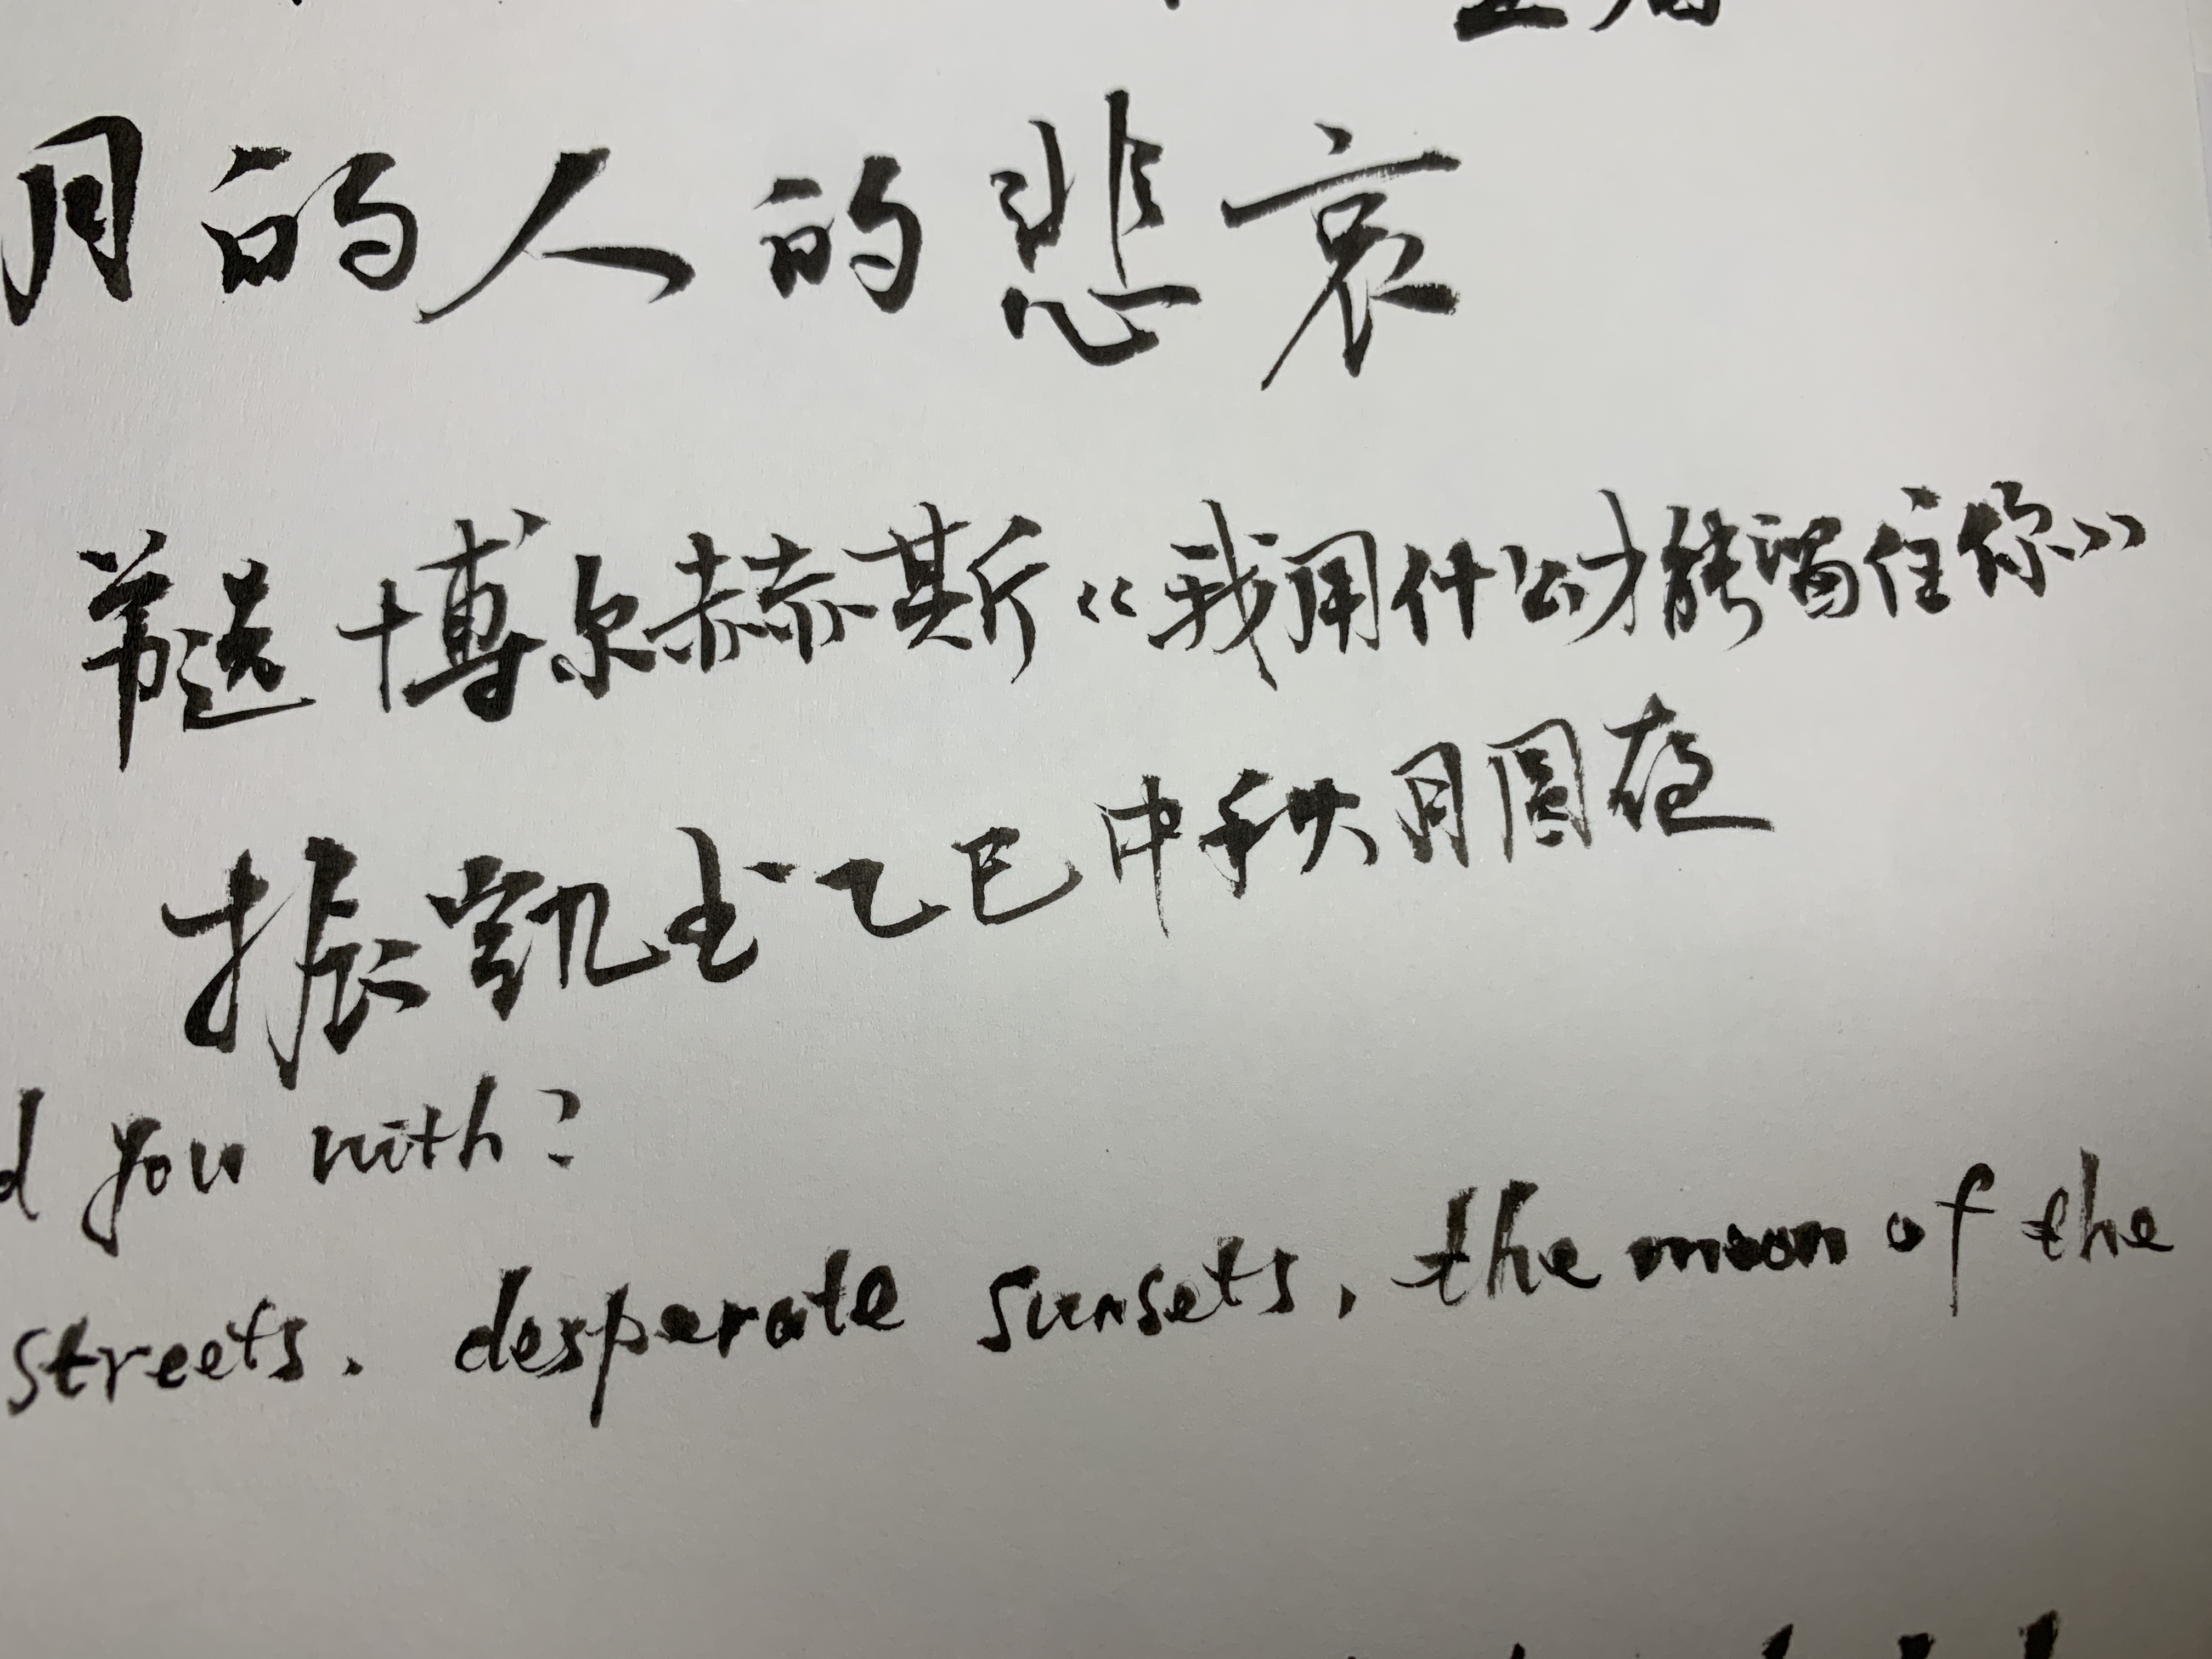 月的人的悲哀
节选 博尔赫斯《我用什么才能留住你》
振凯书 乙巳中秋月圆夜
d you with?
streets. desperate sunsets, the moon of the